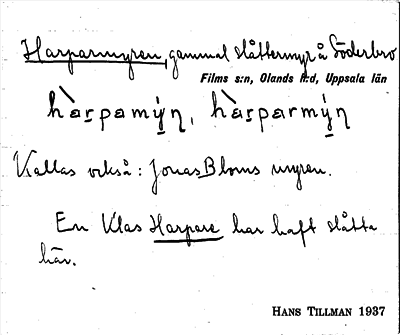 Harparmyren, gammal slåttermyr å Söderbro
Films s:n, Olands h:d, Uppsala län
hàrpamýn, hàrparmýn
Kallas också: Jonas Bloms myren.
En Klas Harpare har haft slåtta
här.
HANS TILLMAN 1937